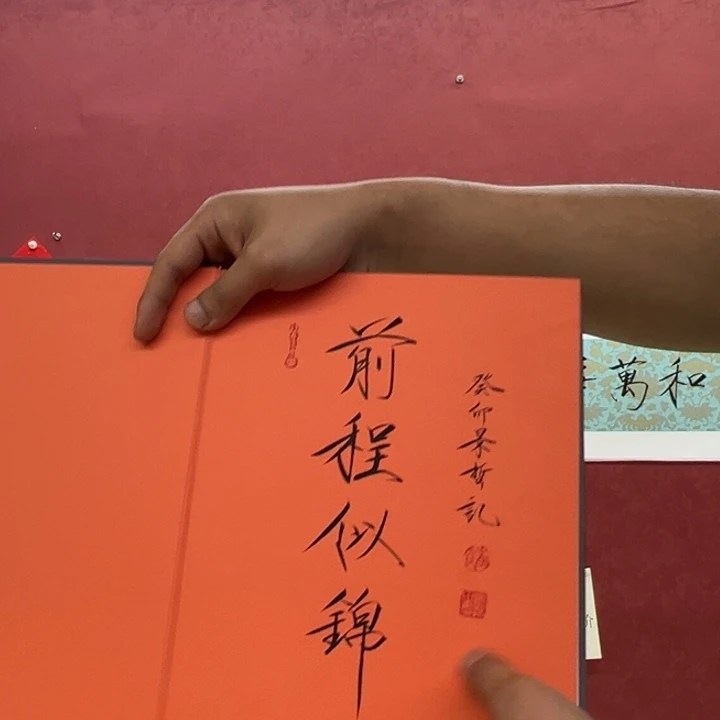 前程似錦
癸卯景哲記
和萬